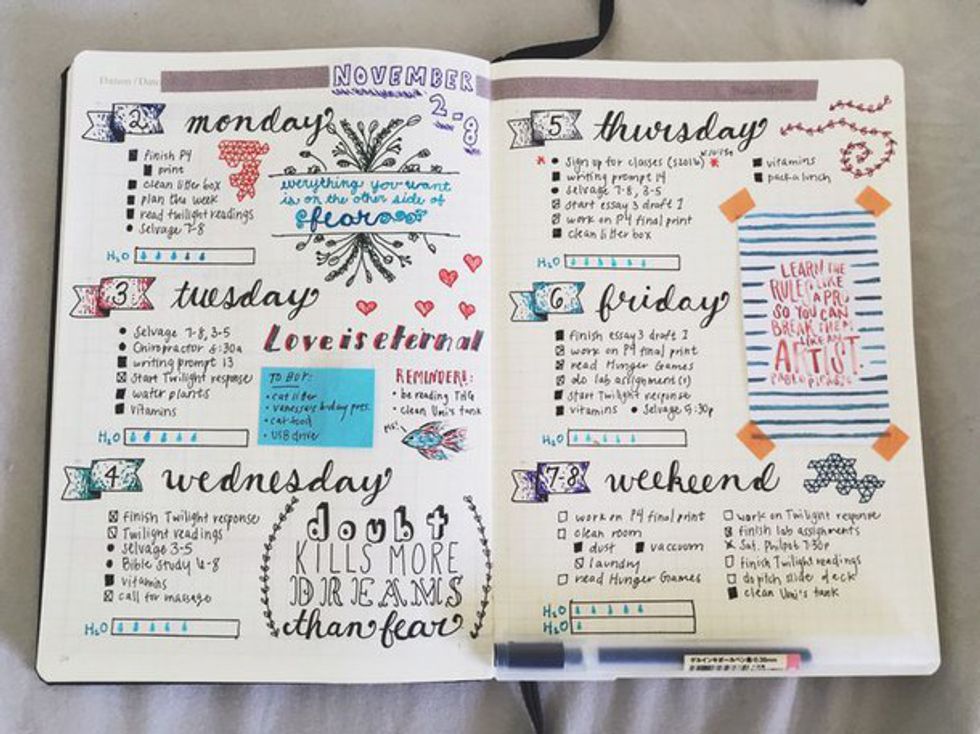 Datum / Date
NOVEMBER
2-8
2 monday
finish P4
print
clean litter box
plan the week
read twilight readings
selvage 7-8
H2O
everything you want
is on the other side of
fear
3 tuesday
Selvage 7-8, 3-5
Chiropractor 8:30a
writing prompt 13
start Twilight response
water plants
vitamins
H2O
Love is eternal
TO BUY:
cat litter
vanessa's bday pres.
cat food
USB drive
REMINDERS:
be reading THG
clean Umi's tank
4 wednesday
finish Twilight response
Twilight readings
selvage 3-5
Bible Study 6-8
vitamins
call for massage
H2O
doubt
KILLS MORE
DREAMS
than fear
5 thursday
sign up for classes (S2016)
writing prompt 14
selvage 7-8, 3-5
start essay 3 draft 1
work on P4 final print
clean litter box
vitamins
pack a lunch
H2O
6 friday
finish essay 3 draft 1
work on P4 final print
read Hunger Games
do lab assignment(s)
start Twilight response
vitamins selvage 5:30p
H2O
LEARN THE
RULES LIKE
A PRO
SO YOU CAN
BREAK THEM
LIKE AN
ARTIST.
PABLO PICASSO
7-8 weekend
work on P4 final print
clean room
dust vaccuum
laundry
read Hunger Games
work on Twilight response
finish lab assignments
Sat. Philpot 7:30p
finish Twilight readings
do pitch slide deck
clean Umi's tank
H2O
H2O
ゲルインキボールペン黒・0.38mm